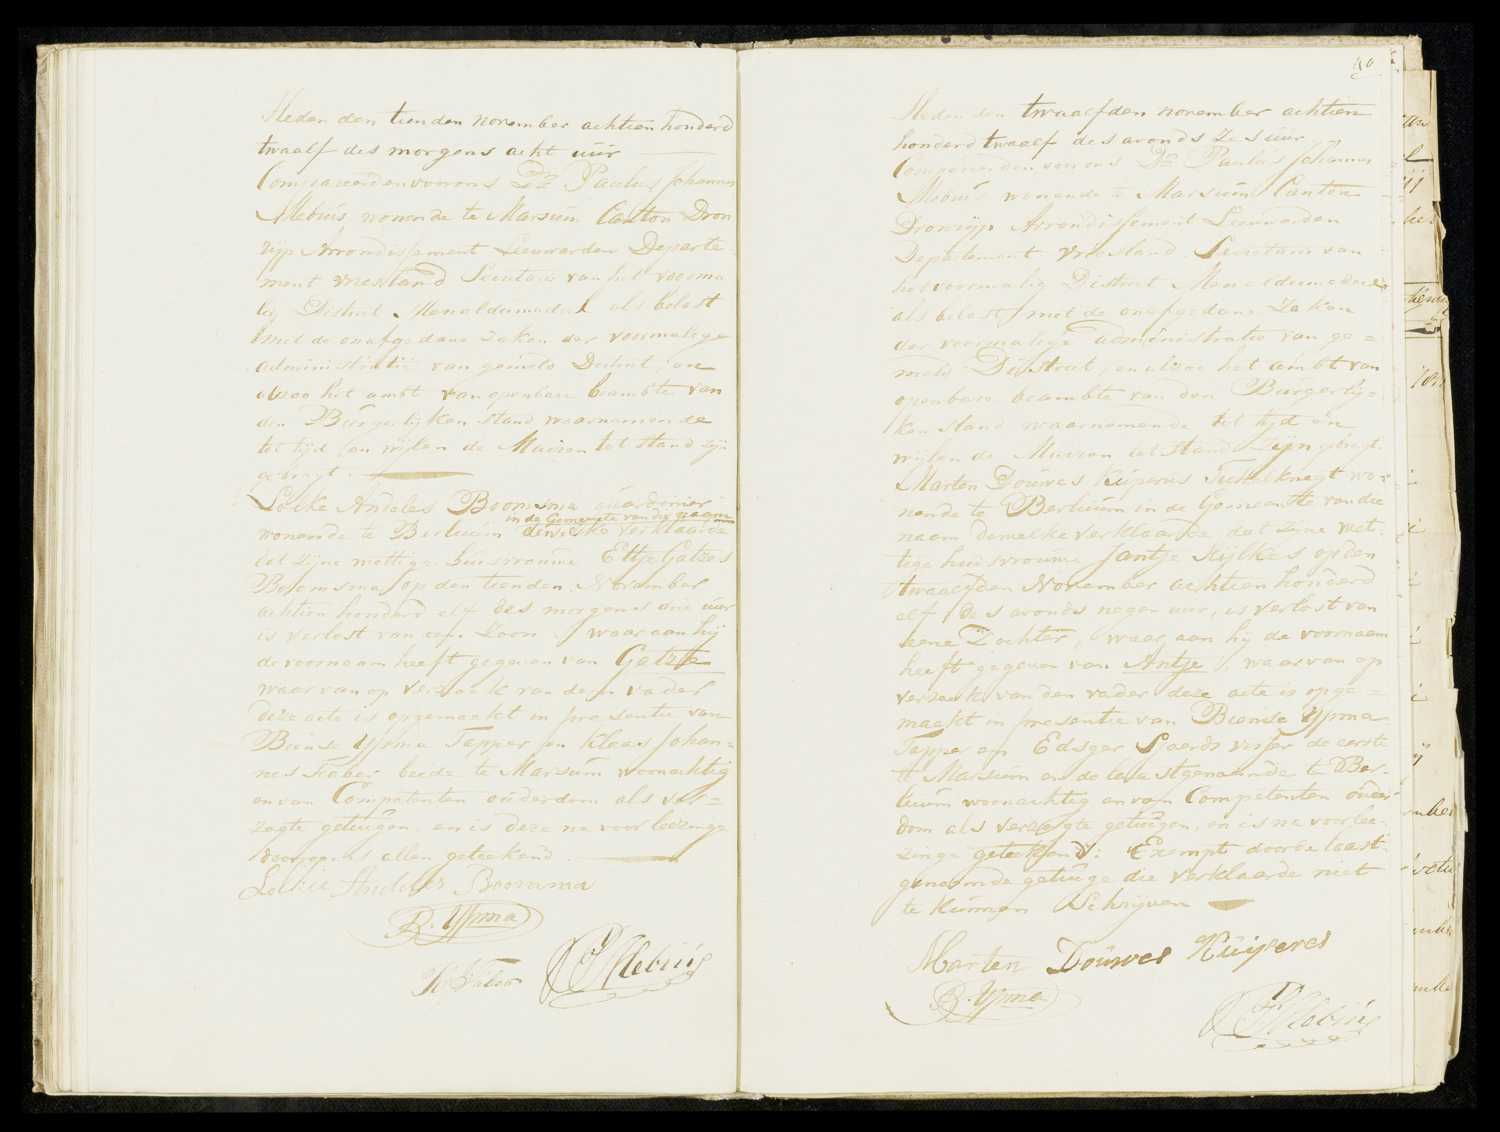 Heden den tienden november achtien honderd
twaalf des morgens acht uur
Compareerden voor ons Paulus Johannes
Mebius wonende te Marsum Canton Dron
rijp Arrondissement Leeuwarden Departe
ment Vriesland Secretaris van het voorma
lig District Menaldumadeel als belast
met de onafgedane zaken der voormalige
administratie van gemeld District, en
alzoo het ambt van openbare beambte van
den Burgerlijken stand waarnemende
tot tijd en wijlen de Mairien tot stand zijn
gebragt.
Lolke Andeles Boomsma
in de Gemeente van die naam
wonende te Berlicum dewelke verklaarde
dat zijne wettige huisvrouwe Eltje Gatzes
Boomsma op den tienden November
achtien honderd elf des morgens drie uur
is verlost van een Zoon, waar aan hij
de voornaam heeft gegeven van Gatze
waar van op verzoek van den vader
deze acte is opgemaakt in presentie van
Biense Ypma Tapper en Klaas Johan=
nes Faber beede te Marsum woonachtig
en van Competenten ouderdom als ver=
zogte getuigen, en is deze na voorlezinge
door ons allen geteekend.
Lolke Andeles Boomsma
B. Ypma
K Faber PJMebius
40
Heden den twaalfden november achtien
honderd twaalf des avonds zes uur
Compareerden voor ons Paulus Johannes
Mebius wonende te Marsum Canton
Dronrijp Arrondissement Leeuwarden
Departement Vriesland Secretaris van
het voormalig District Menaldumadeel
als belast met de onafgedane zaken
der voormalige administratie van ge=
meld District, en alzoo het ambt van
openbare beambte van den Burgerlij=
ken stand waarnemende tot tijd en
wijlen de Mairien tot stand zijn gebragt.
Marten Douwes Kuiperes wo=
nende te Berlicum in de Gemeente van die
naam dewelke verklaarde, dat zijne wet=
tige huisvrouwe Jantje Rijlkes op den
twaalfden November achtien honderd
elf des avonds negen uur, is verlost van
eene Dochter, waar aan hij de voornaam
heeft gegeven van Antje, waar van op
verzoek van den vader deze acte is opge=
maakt in presentie van Biense Ypma
Tapper en Edsger Sjoerds visser de eerste
te Marsum en de laastgenaamde te Ber=
licum woonachtig en van Competenten ouder=
dom als verzogte getuigen, en is na voorlee=
zinge geteekend: Exempt door de laast
genoemde getuige die verklaarde niet
te kunnen Schrijven
Marten Douwes Kuiperes
B. Ypma
PJMebius